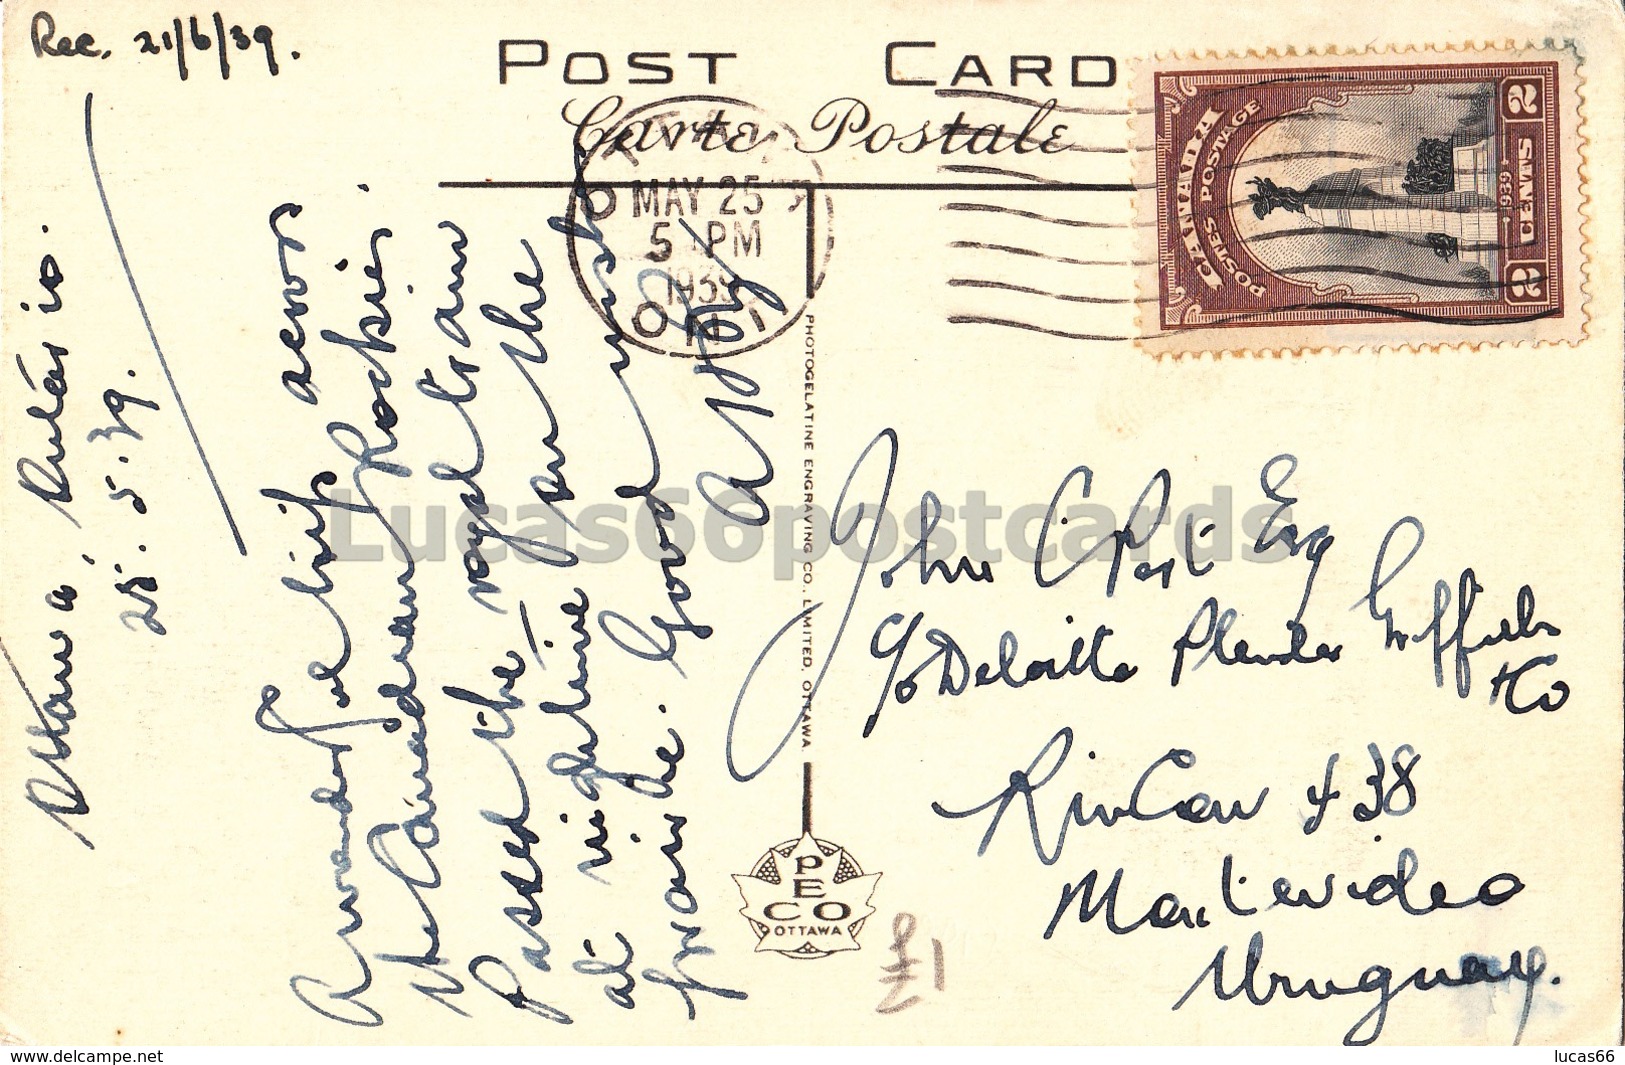 Rec. 21/6/39.
POST CARD
Carte Postale
OTTAWA
MAY 25
5 PM
1939
ONT
CANADA
POSTES POSTAGE
1939
2 CENTS 2
Ottawa, Ontario.
25.5.39.
A wonderful trip across
the Canadian Rockies.
Passed the royal train
at nighttime on the
prairie. Good wishes
PHOTOGELATINE ENGRAVING CO., LIMITED, OTTAWA
PECO
OTTAWA
John C Post Esq
c/o Deloitte Plender Griffiths
& Co
Rincon 438
Montevideo
Uruguay.
£1
Lucas66postcards
www.delcampe.net
lucas66